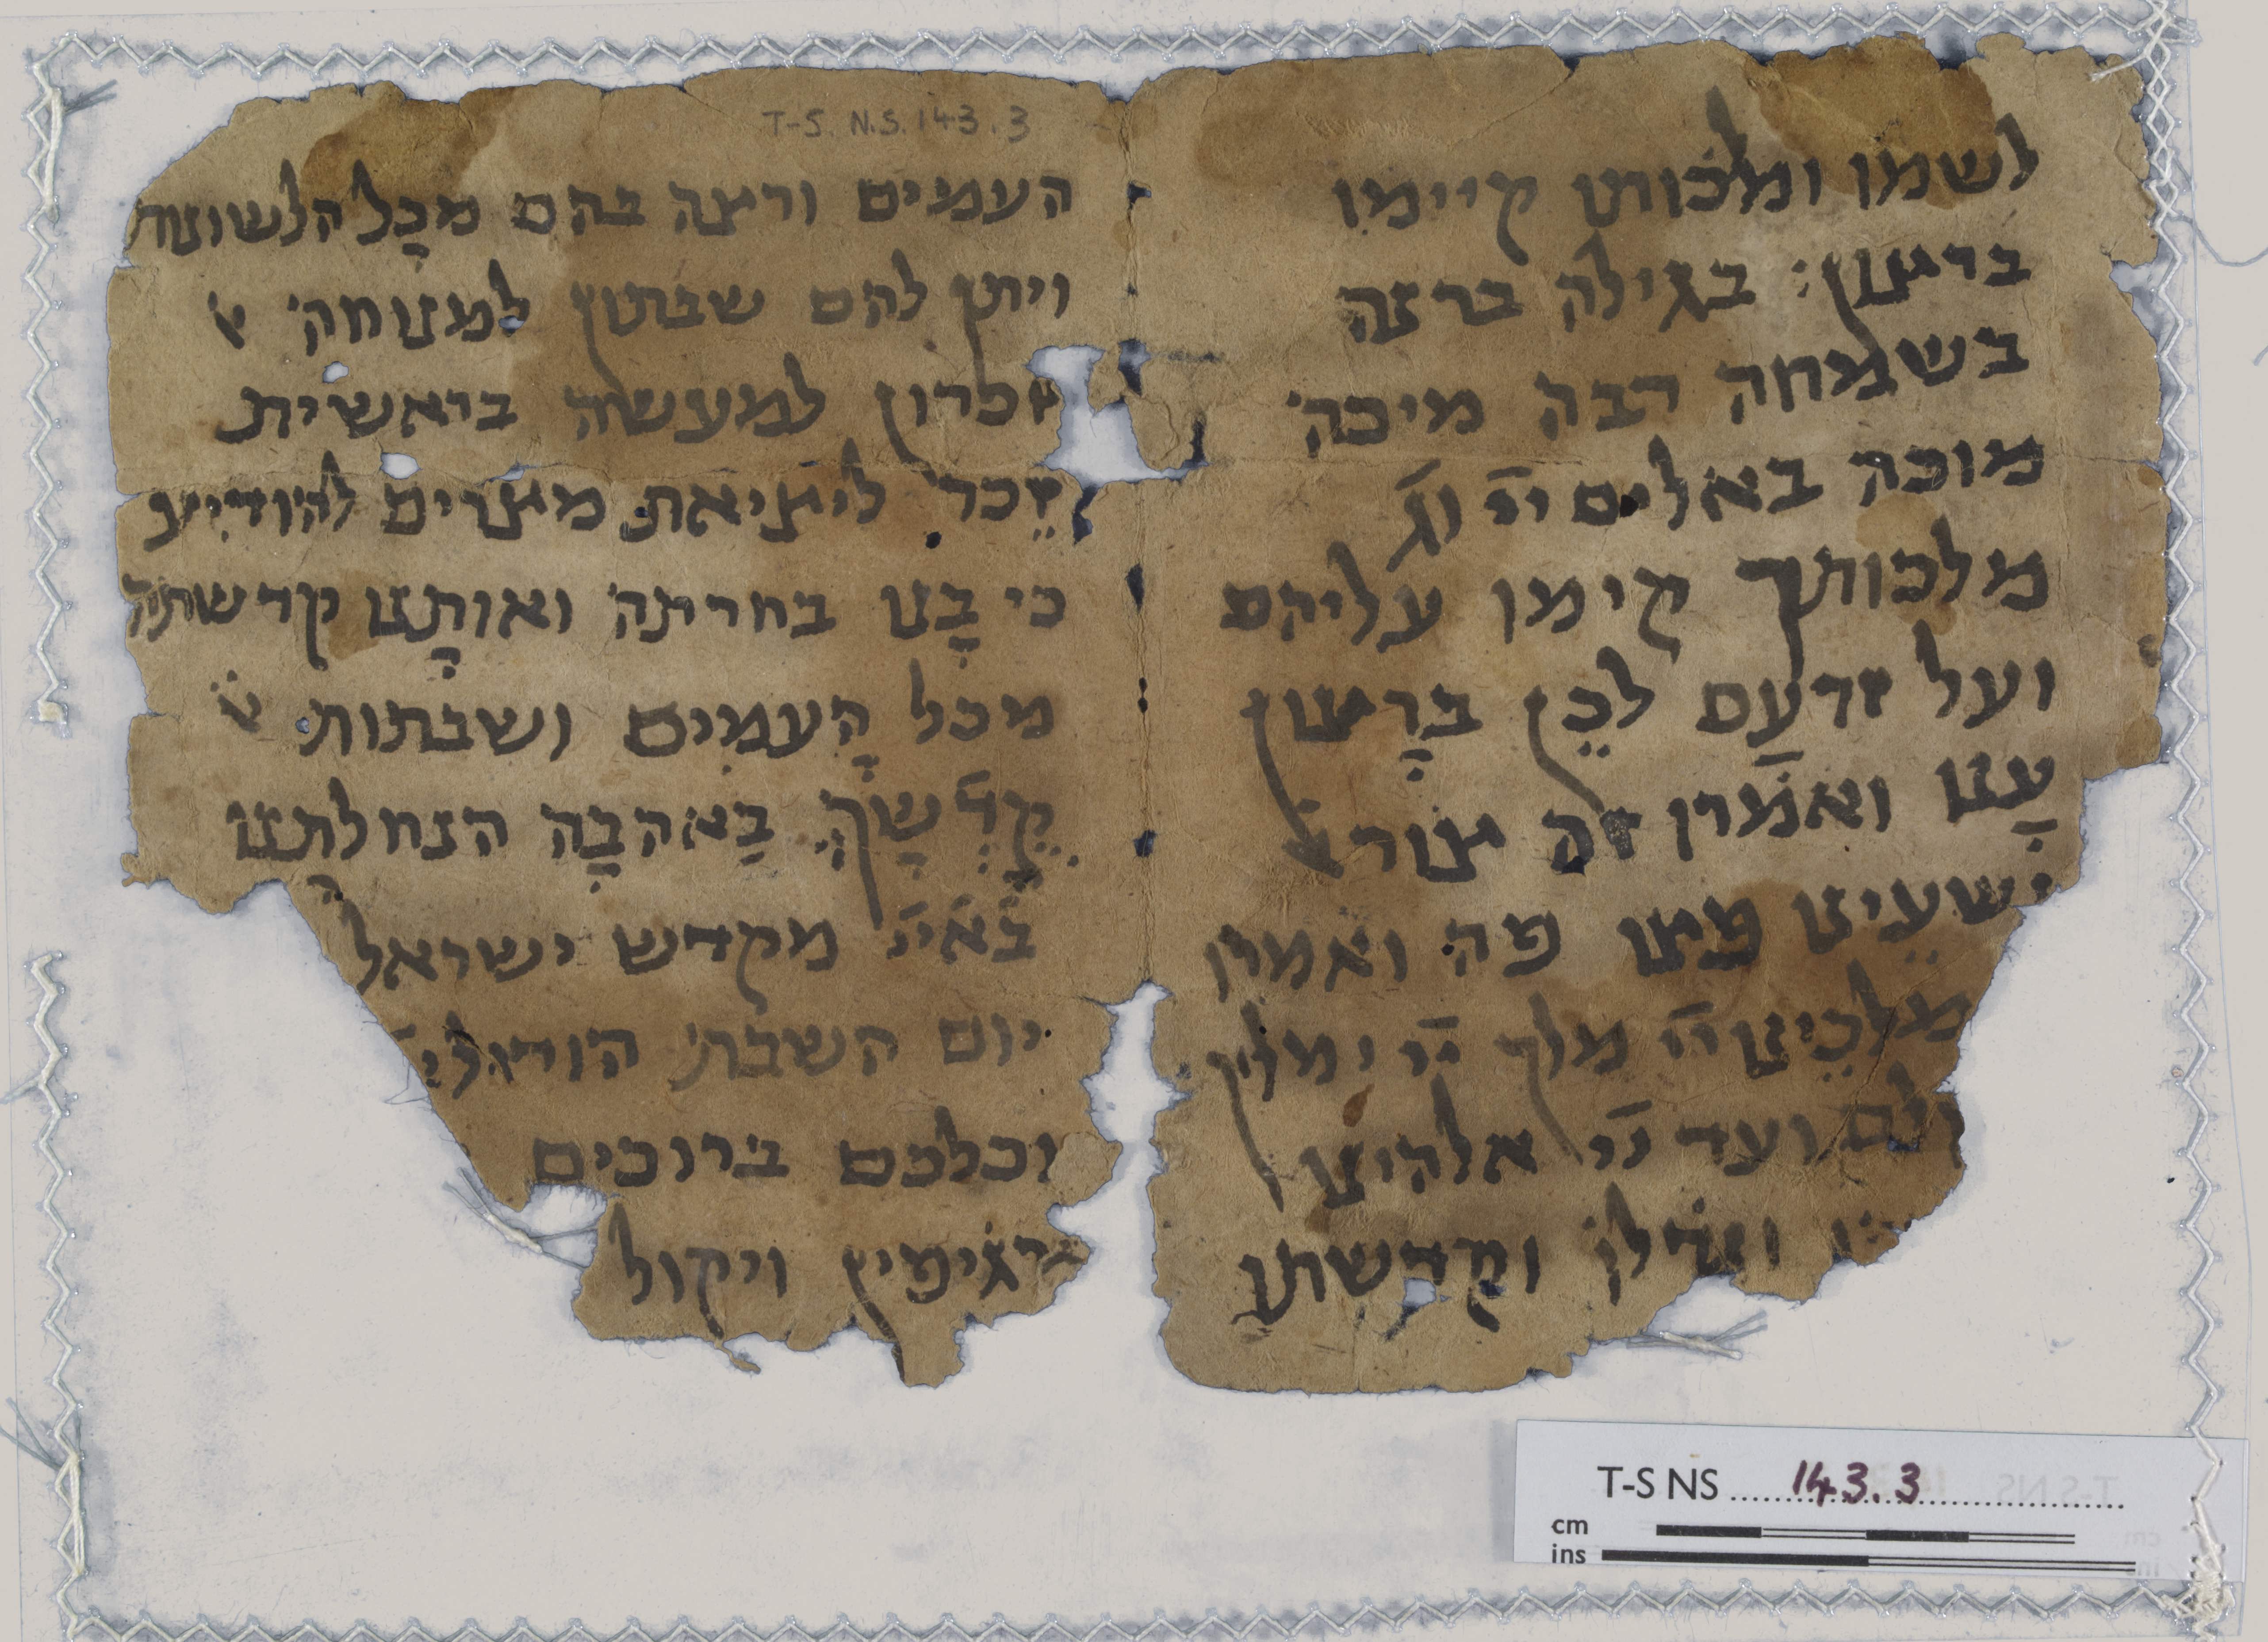 לשמו ומלכותו קיימו
ברצון: בגילה ברנה
בשמחה רבה מיכה
מוכה באלים יי וג
מלכותך קימו עליהם
ועל זרעם לכן ברצון
ענו ואמרו זה צור
ישעינו פצו פה ואמרו
מלכינו יי מלך יי ימלוך
ועד יי אלהינו
וגדלו וקדשתו
העמים ורצה בהם מכל הלשונות
ויתן להם שבתון למנוחה
זכרון למעשה בראשית
זכר ליציאת מצרים להודיע
כי בנו בחרתה ואותנו קדשתה
מכל העמים ושבתות
קדשך באהבה הנחלתנו
באיי מקדש ישראל
יום השבת הודו ליי
וכלכם ברוכים
ויקול
T-S. N.S. 143.3
T-S NS 143.3
cm
ins